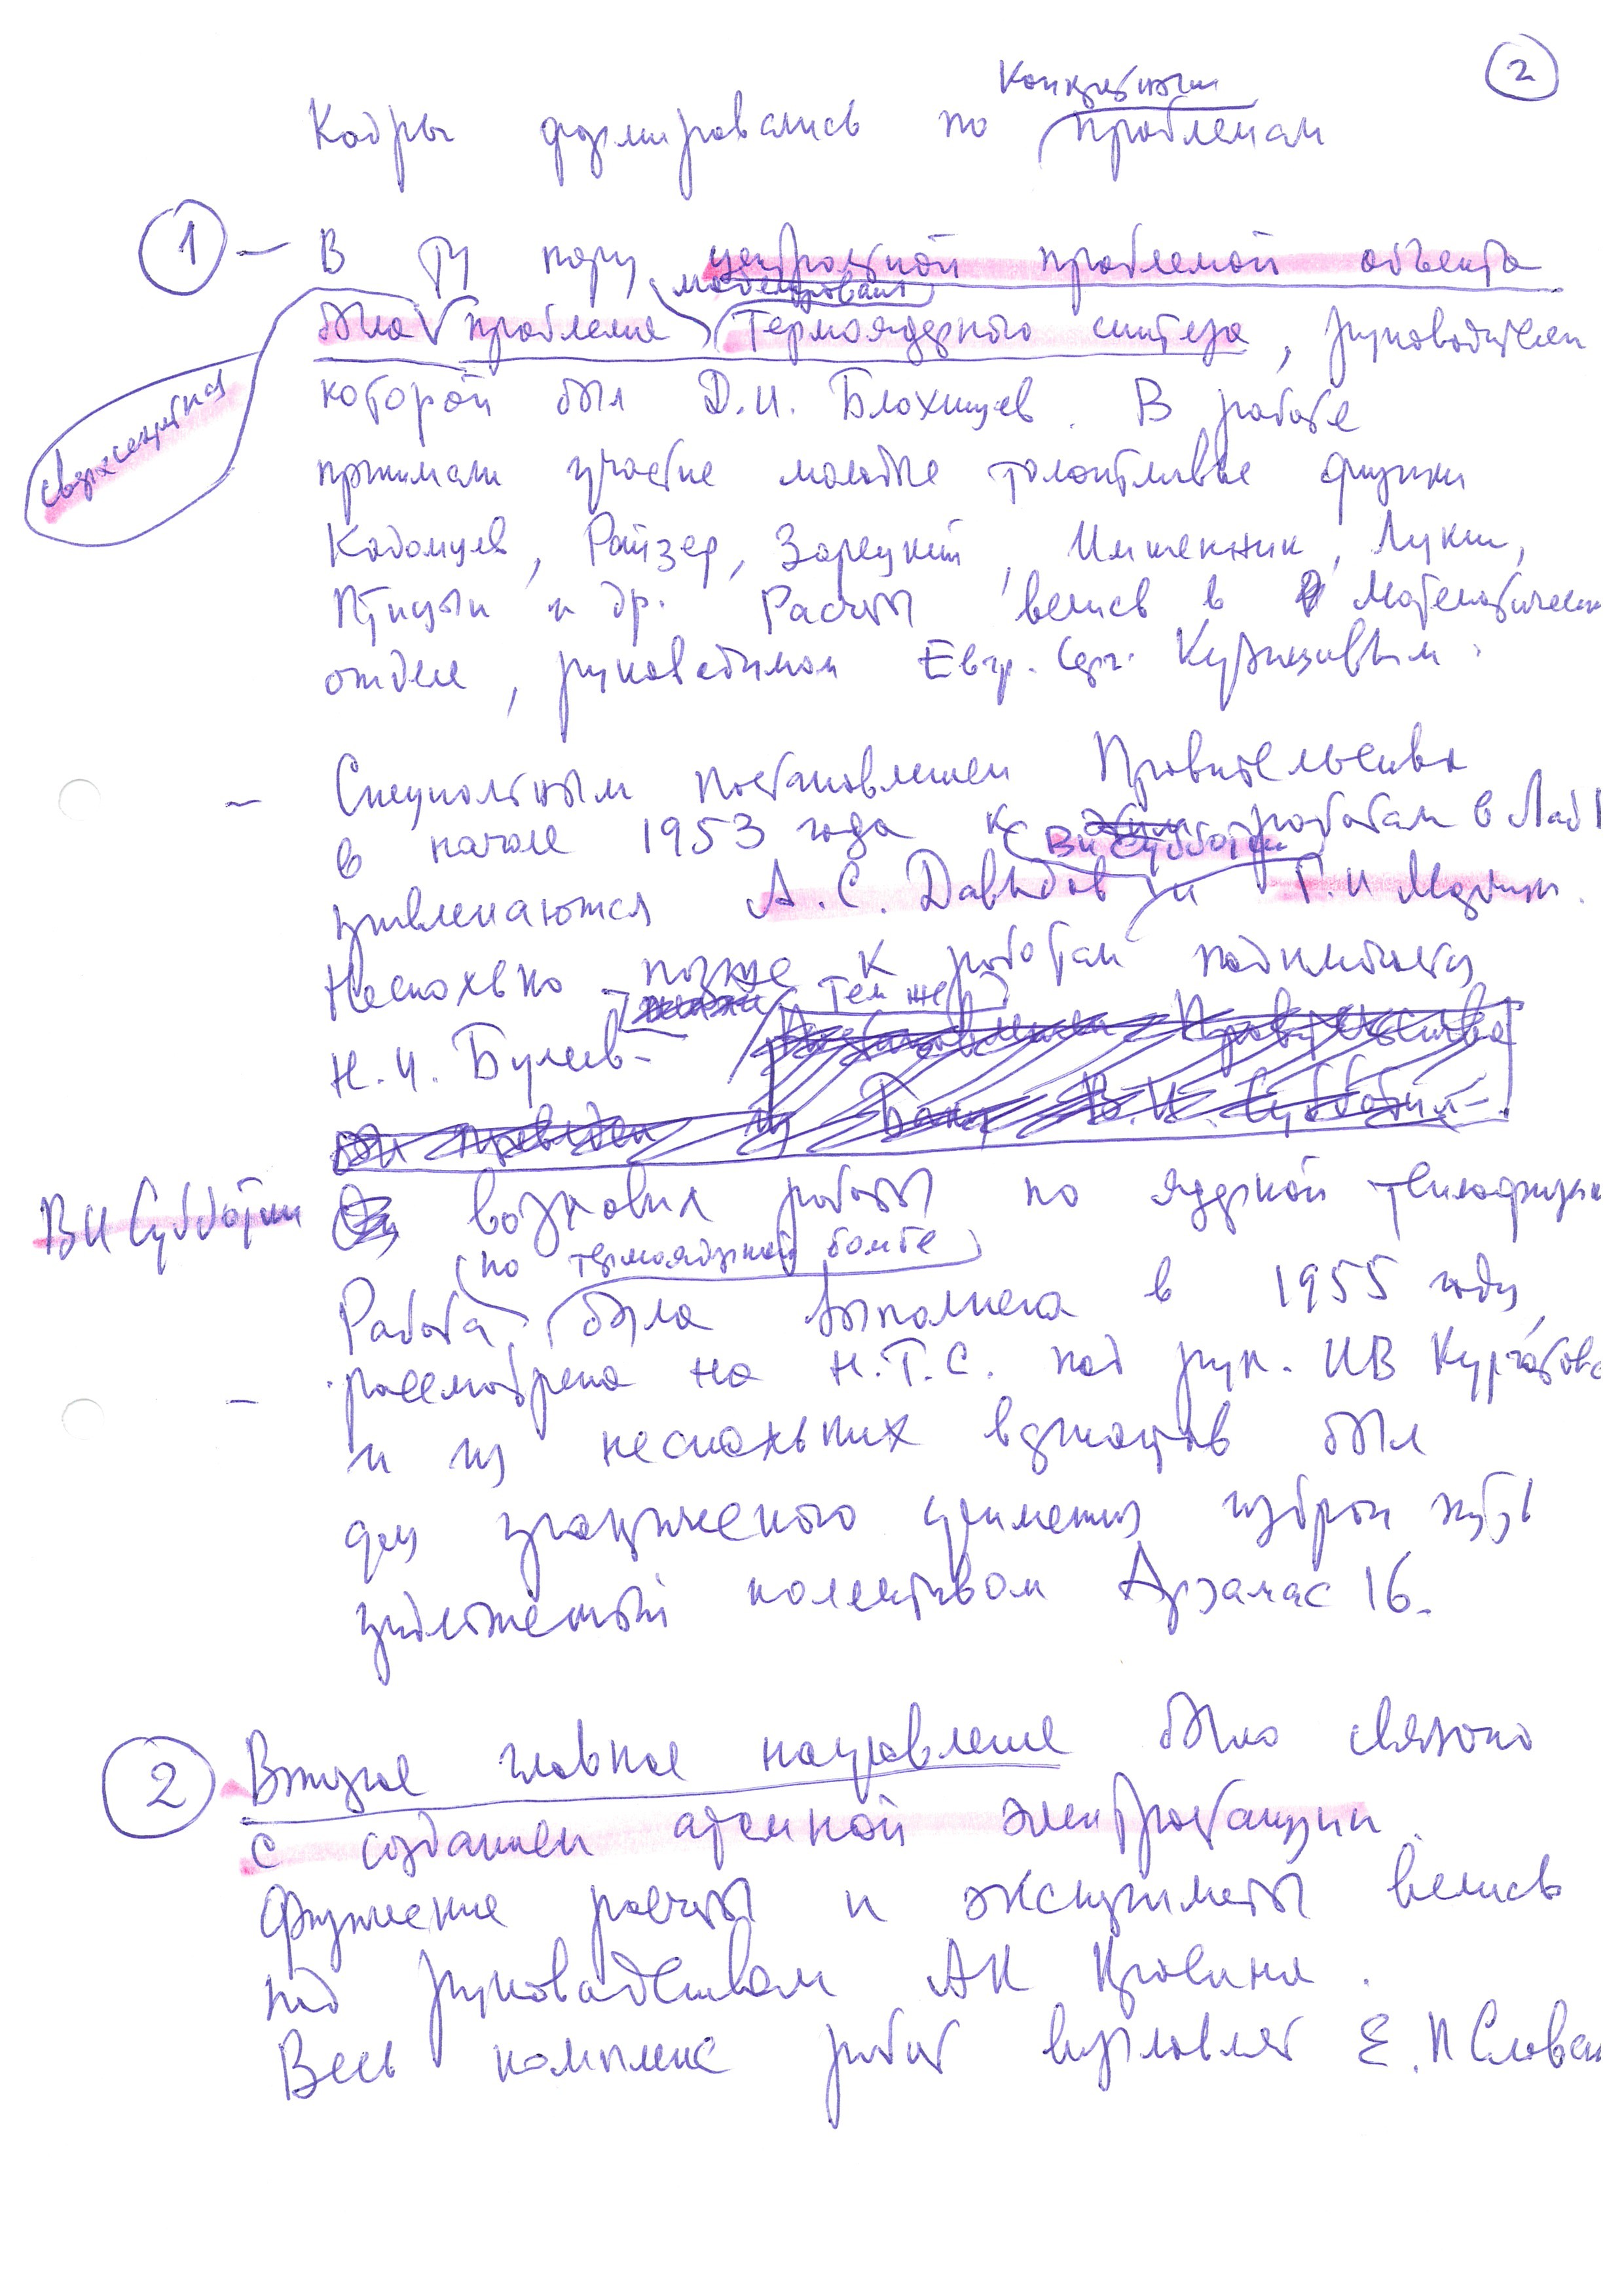 2
конкретным
Кадры формировались по проблемам
1 – В ту пору центральной проблемой объекта
моделирования
была проблема термоядерного синтеза, руководителем
сверхсекретная
которой был Д.И. Блохинцев. В работе
принимали участие молодые талантливые физики
Кадомцев, Райзер, Зарецкий, Имшенник, Лукин,
Птицын и др. Расчеты велись в Математическом
отделе, руководимом Евгр. Серг. Кузнецовым.
– Специальным постановлением Правительства
в начале 1953 года к этим работам в Лаб
ВИ Субботин
привлекаются А.С. Давыдов и Г.И Марчук.
Несколько позже к работам подключается
тем же
Н.И. Булеев –
Постановлением Правительства
из Баку В.И. Субботин –
ВИ Субботин возглавил работы по ядерной теплофизике
по термоядерной бомбе
Работа была выполнена в 1955 году,
– рассмотрена на Н.Т.С. под рук. ИВ Курчатова
и из нескольких вариантов был
для практического применения избран путь
предложенный колективом Арзамас 16.
2 Второе главное направление было связано
с созданием атомной электростанции.
Физические расчеты и эксперименты велись
под руководством АК Красина.
Весь комплекс работ возглавлял Е.П Славский